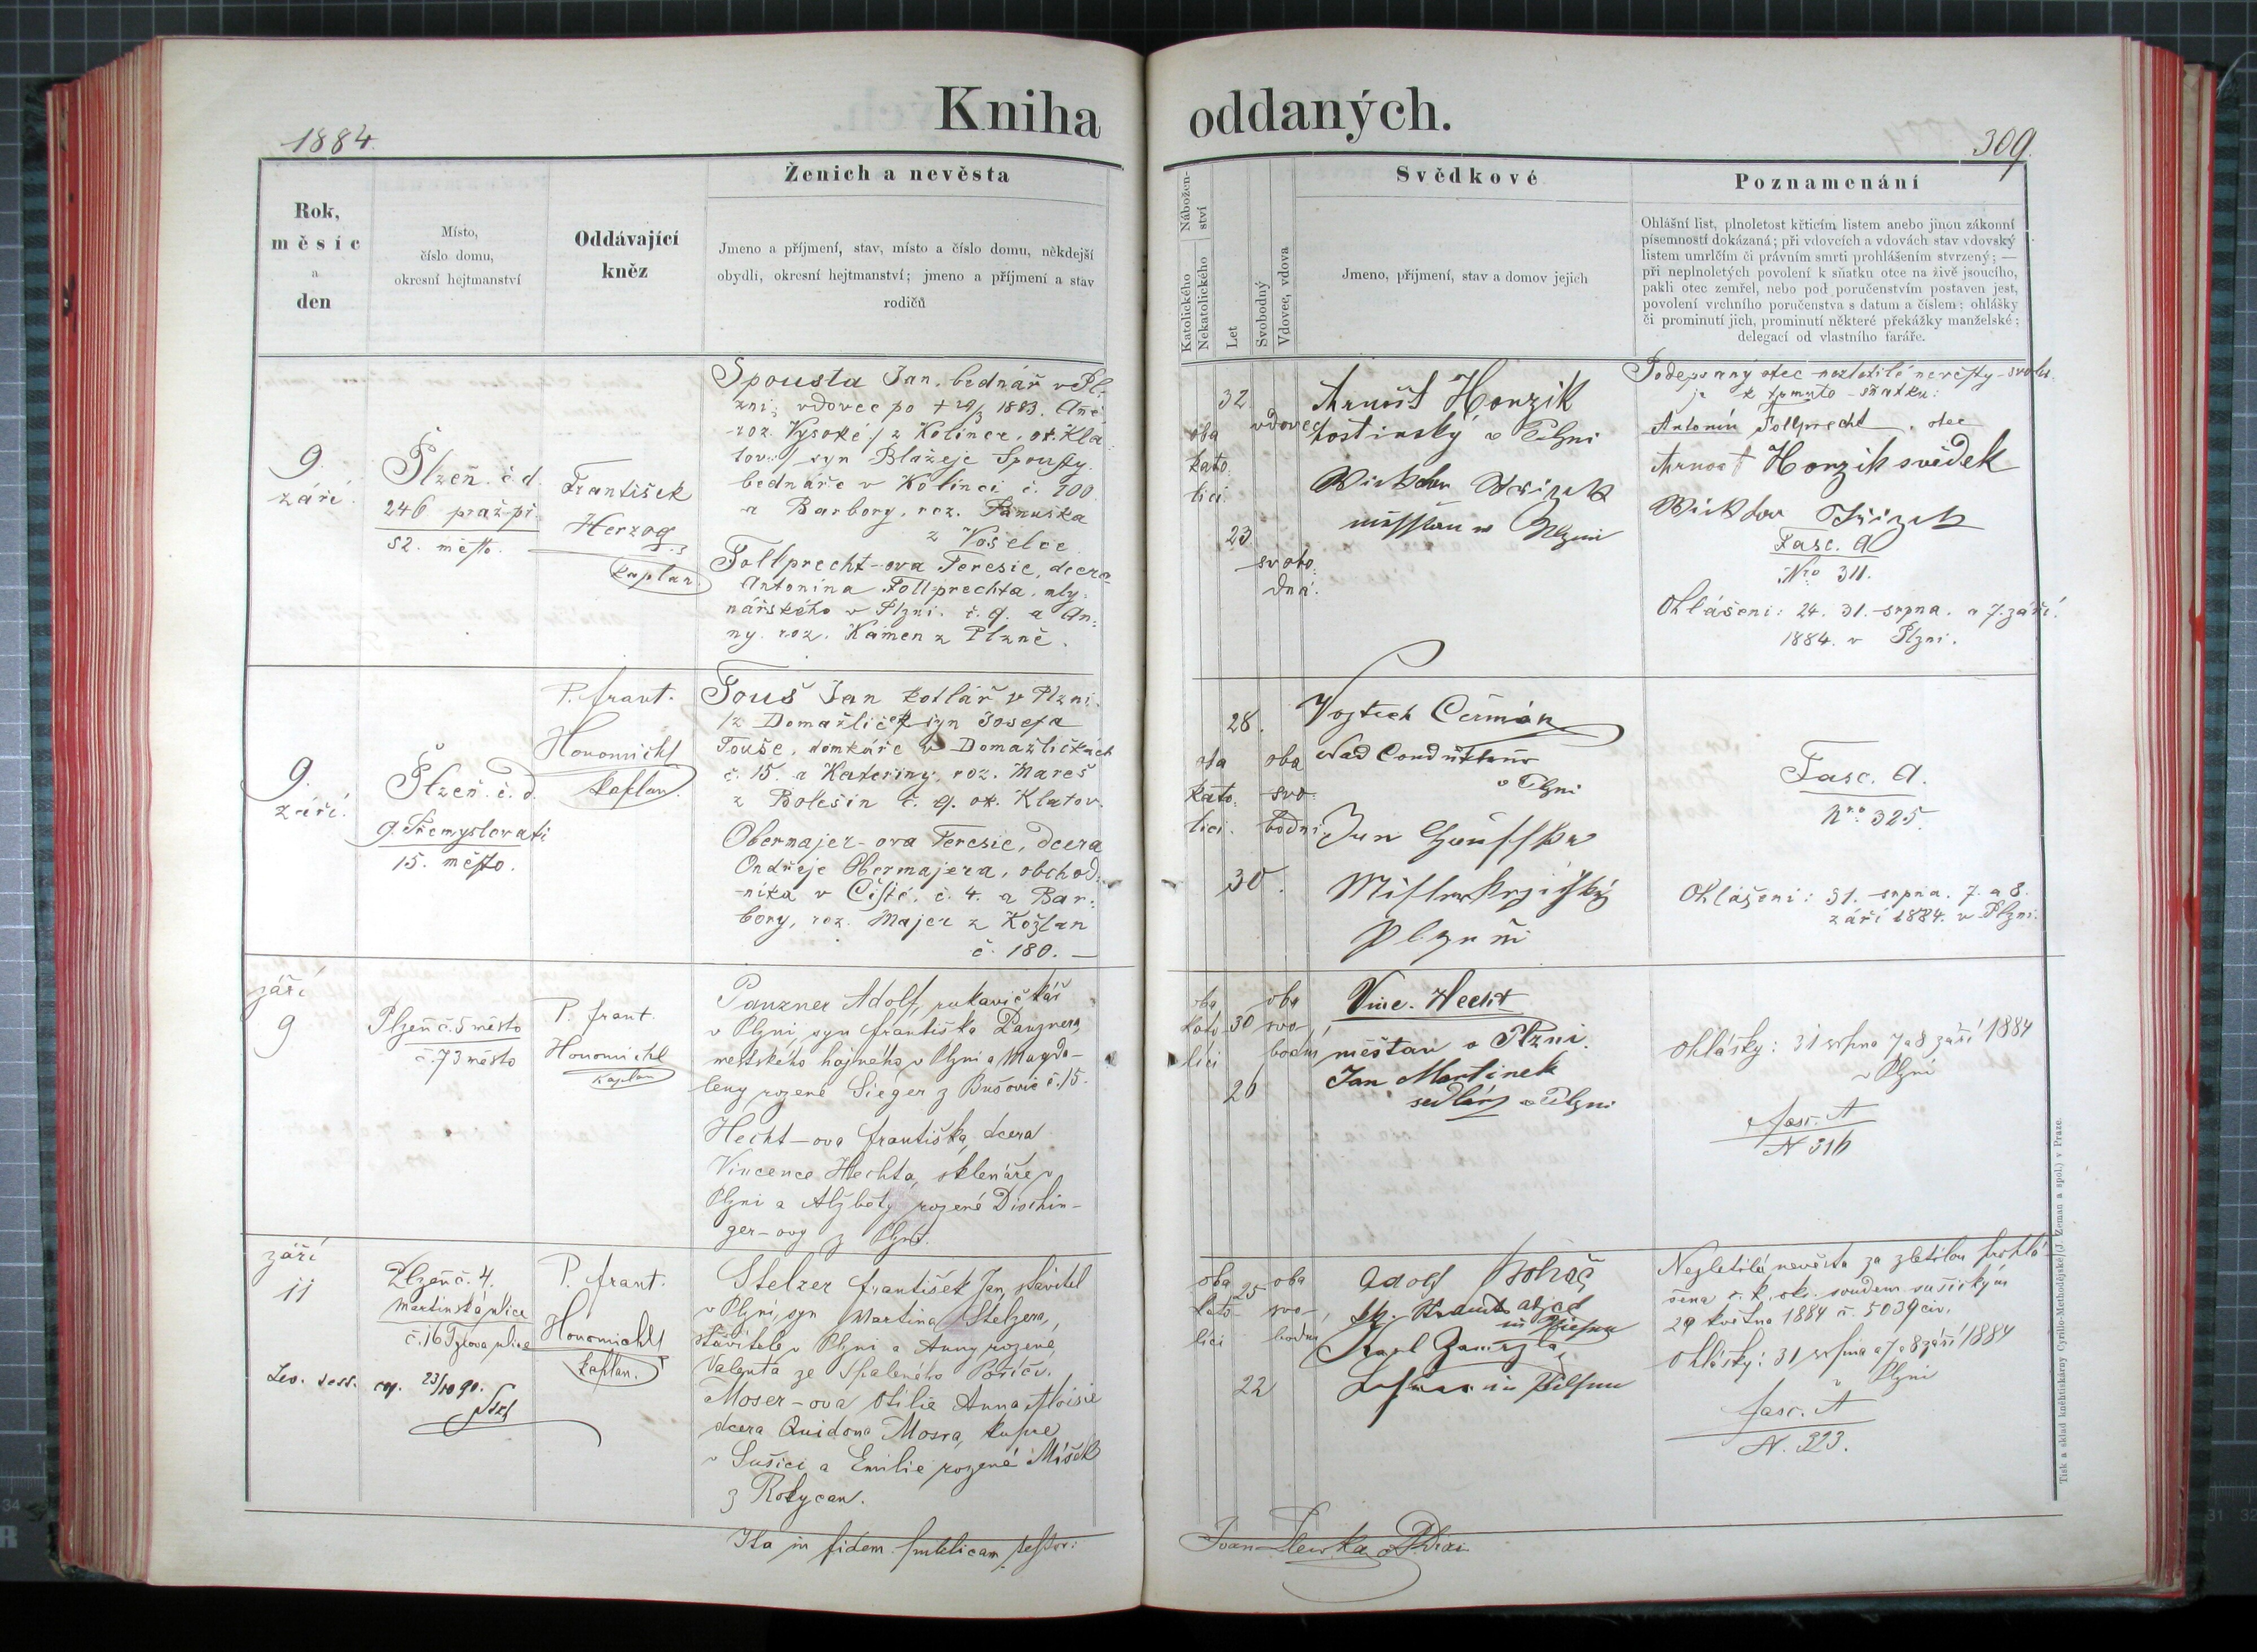 Kniha oddaných.
1884.
309.
Rok,
měsíc
a
den
Místo,
číslo domu,
okresní hejtmanství
Oddávající
kněz
Ženich a nevěsta
Jmeno a příjmení, stav, místo a číslo domu, někdejší
obydlí, okresní hejtmanství; jmeno a příjmení a stav
rodičů
Nábožen-
ství
Katolického
Nekatolického
Let
Svobodný
Vdovec, vdova
Svědkové
Jmeno, příjmení, stav a domov jejich
Poznamenání
Ohlášní list, plnoletost křticím listem anebo jinou zákonní
písemností dokázaná; při vdovcích a vdovách stav vdovský
listem umrlčím či právním smrti prohlášením stvrzený; —
při neplnoletých povolení k sňatku otce na živě jsoucího,
pakli otec zemřel, nebo pod poručenstvím postaven jest,
povolení vrchního poručenstva s datum a číslem; ohlášky
či prominutí jich, prominutí některé překážky manželské;
delegací od vlastního faráře.
9.
září.
Plzeň č.d.
246 praž. př.
52. město.
František
Herzog
kaplan
Spousta Jan, bednář v Pl-
zni, vdovec po 1883.
roz. Vysoké / z Kolince, ok. Kla-
tov. / syn Blažeje Spousty
bednáře v Kolinci č. 100
a Barbory, roz. Panuška
z Voselce
Tollprecht-ova Teresie, dcera
Antonína Tollprechta, mly-
nářského v Plzni č. 9. a An-
ny roz. Kamen z Plzně.
32
vdovec
oba
kato-
lici.
23
svobo-
dná.
Arnošt Honzik
hostinský v Plzni
Podepsaný otec nezletilé nevěsty svolu
je k tomuto sňatku:
Antonín Tollprecht, otec
Arnošt Honzik svědek
Fasc. A
Nro 311.
Ohlášeni: 24. 31. srpna. a 7. září.
1884. v Plzni.
9.
září.
Plzeň č. d.
9. Přemyslova tř.
15. město.
P. frant.
Honomichl
kaplan.
Touš Jan kotlář v Plzni
/z Domažliček syn Josefa
Touše, domkáře v Domažličkách
č. 15. a Kateřiny, roz. Mareš
z Bolešin č. 9. ok. Klatov.
Obermajer-ova Teresie, dcera
Ondřeje Obermajera, obchod-
níka v Čisté, č. 4. a Bar-
bory, roz. Majer z Kožlan
č. 180. —
28.
oba
kato-
lici.
oba
svo-
bodni
30.
Vojtěch Čermán
v Plzni
Jan
Plzni
Fasc. A.
Nro: 325.
Ohlášeni: 31. srpna. 7. a 8.
září 1884. v Plzni.
září
9
Plzeň č. 5 město
č. 73 město
P. frant.
Honomichl
kaplan
Panzner Adolf, rukavičkář
v Plzni, syn františka Panznera,
městského hajného v Plzni a Magda-
leny rozené Sieger z Bušovic č. 15.
Hecht-ova františka, dcera
Vincence Hechta, sklenáře v
Plzni a Alžběty rozené Dischin-
ger-ovy z Plzně.
oba
kato-
líci
30
oba
svo-
bodní
26
Vinc. Hecht
měšťan v Plzni.
Jan Martinek
sedlář v Plzni
Ohlášky: 31 srpna 7 a 8 září 1884
v Plzni
fasc. A
N 316
září
11
Plzeň č. 4.
Martinská ulice
č. 16 Tylova ulice
P. frant.
Honomichl
kaplan.
Stelzer františek Jan, stavitel
v Plzni, syn Martina Stelzera,
stavitele v Plzni a Anny rozené
Valenta ze Spaleného Poříčí.
Moser-ova Otilie Anna Aloisie
dcera Quidona Mosra, kupce
v Sušici a Emilie rozené Míšek
z Rokycan.
oba
kato-
líci
25
oba
svo-
bodní
22
Adolf
Karl
in Pilsen
Nezletilá nevěsta za zletilou prohlá-
šena c. k. okr. soudem sušickým
29 května 1884 č. 5039 civ.
Ohlášky: 31 srpna a 7 a 8 září 1884
v Plzni
fasc. A
N. 323.
Ita in fidem publicam testor:
Tisk a sklad knihtiskárny Cyrillo-Methodějské (J. Zeman a spol.) v Praze.